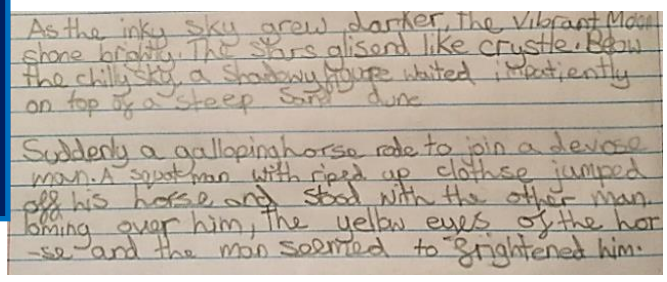 As the inky sky grew darker, the vibrant Moon
shone brightly. The stars glisend like crystle. Below
the chilly sky, a shadowy figure waited impatiently
on top of a steep sand dune
Suddenly a galloping horse rode to join a devose
man. A squat man with riped up clothse jumped
off his horse and stood with the other man.
loming over him, the yellow eyes of the hor
-se and the man seemed to frightened him.